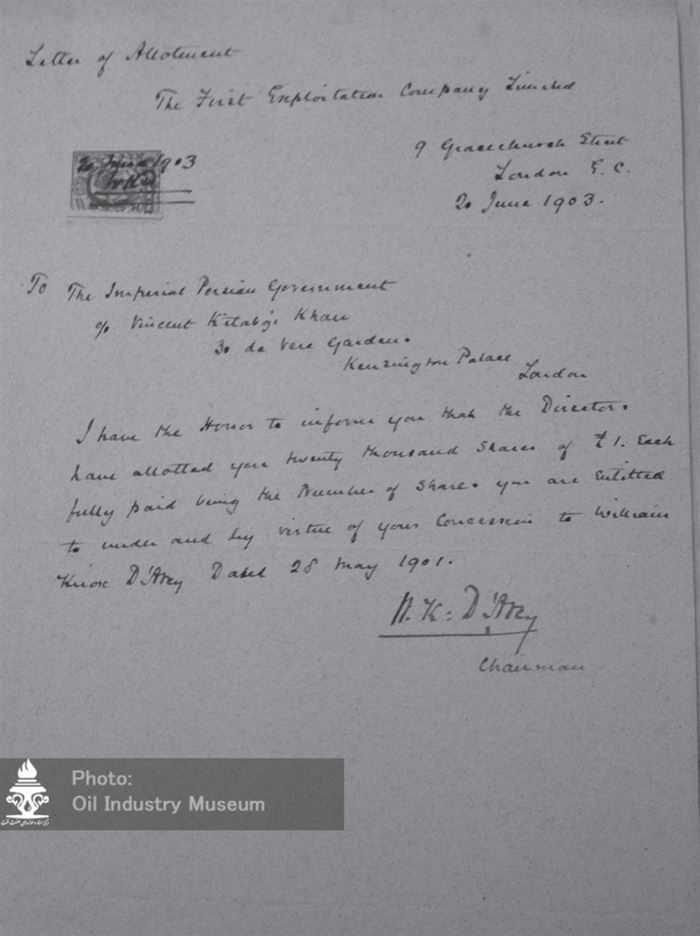 Letter of Allotment
The First Exploitation Company Limited
20 June 1903
9 Gracechurch Street
London E.C.
20 June 1903.
To The Imperial Persian Government
c/o Vincent Kitabgi Khan
30 de Vere Gardens
Kensington Palace
London
I have the Honor to inform you that the Directors
have allotted you twenty thousand Shares of £1. Each
fully paid being the Number of Shares you are Entitled
to under and by virtue of your Concession to William
Knox D'Arcy Dated 28 May 1901.
W. K. D'Arcy
Chairman
Photo:
Oil Industry Museum